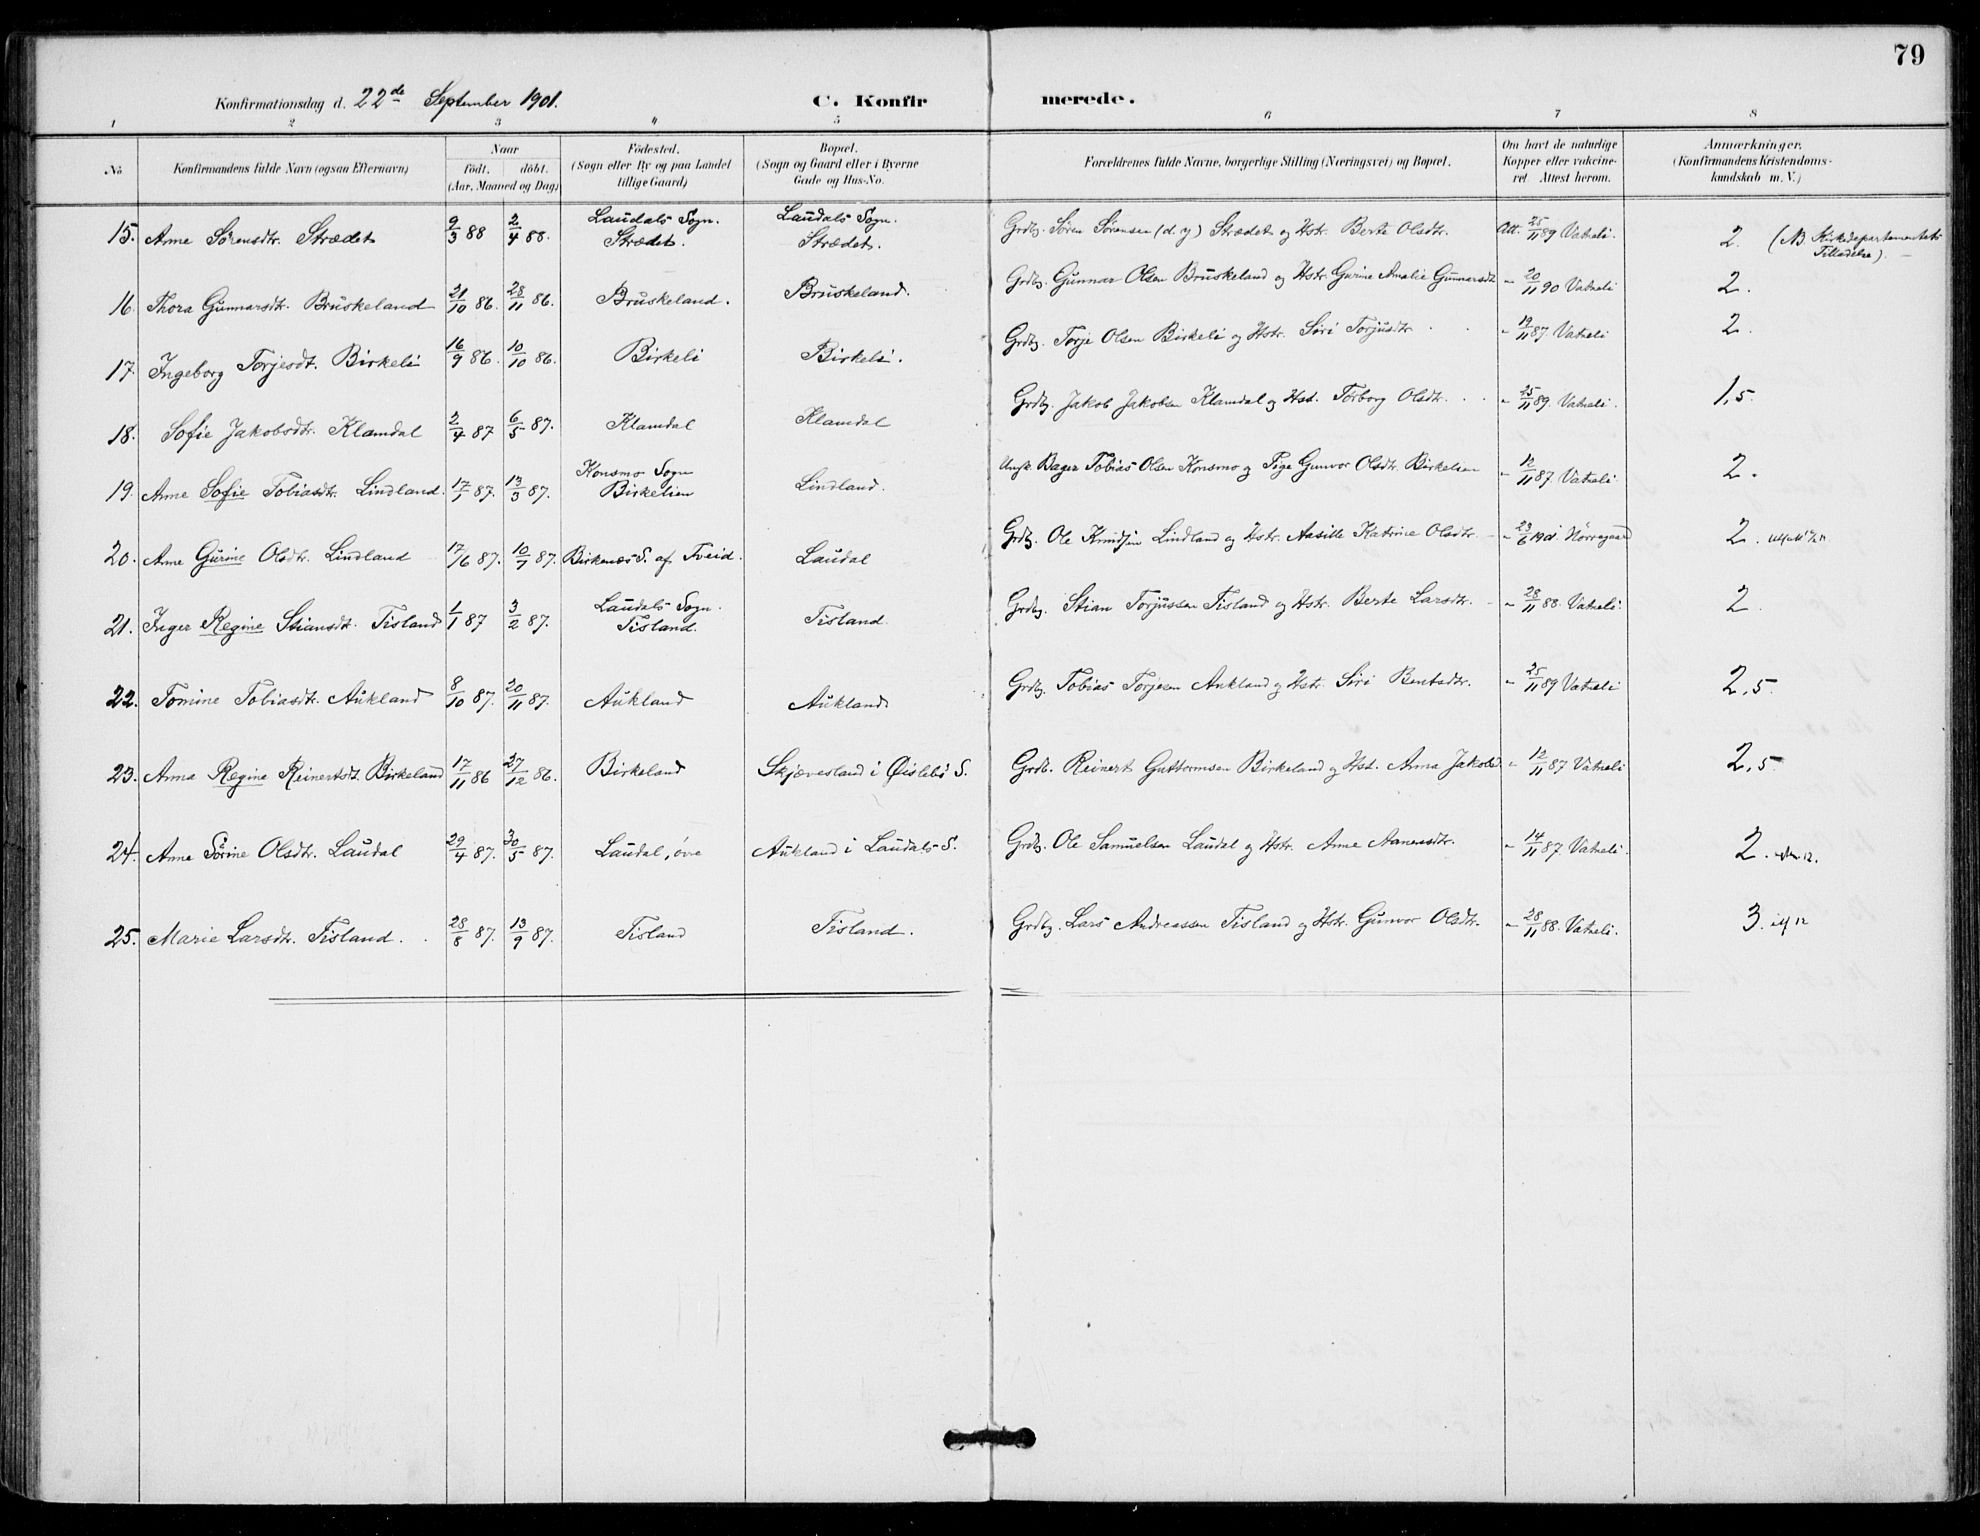 79
Konfirmationsdag d. 22de September 1901. C. Konfirmerede.
1 2 3 4 5 6 7 8
No. Konfirmandens fulde Navn (ogsaa Efternavn) Naar født. døbt. (Aar, Maaned og Dag) Födested. (Sogn eller By og paa Landet tillige Gaard) Bopæl. (Sogn og Gaard eller i Byerne Gade og Hus-No. Forældrenes fulde Navne, borgerlige Stilling (Næringsvei) og Bopæl. Om havt de naturlige Kopper eller vakcineret. Attest herom. Anmærkninger. (Konfirmandens Kristendomskundskab m. V.)
15. Anne Sörensdtr. Strædet 9/3 88 2/4 88. Laudals Sogn. Strædet. Laudals Sogn. Strædet. Grdbg. Sören Sörensen (d. y) Strædet og Hstr. Berte Olsdtr. Att. 25/11 89 Vatneli. 2. (NB Kirkedepartementets Tilladelse).
16. Thora Gunnarsdtr. Bruskeland 21/10 86. 28/11 86. Bruskeland. Bruskeland. Grdbg. Gunnar Olsen Bruskeland og Hstr. Gurine Amalie Gunnarsdt " 20/11 90 Vatneli 2.
17. Ingeborg Torjesdt. Birkeli 16/9 86. 10/10 86. Birkeli Birkeli. Grdbg. Torje Olsen Birkeli og Hstr. Siri Torjusdtr " 19/11 87. Vatneli 2.
18. Sofie Jakobsdtr. Klamdal 2/4 87 6/5 87. Klamdal Klamdal Grdbg. Jakob Jakobsen Klamdal og Hst. Torborg Olsdtr. " 25/11 89. Vatneli. 1,5.
19. Anne Sofie Tobiasdtr. Lindland. 17/1 87. 13/3 87. Konsmo Sogn Birkelien Lindland. Ungk. Bager Tobias Olsen Konsmo og Pige Gunvor Olsdtr. Birkelien " 12/11 87. Vatneli 2.
20. Anne Gurine Olsdtr. Lindland 17/6 87. 10/7 87. Birkenæs S. af Tveid. Laudal Grdbg. Ole Knudsen Lindland og Hstr. Aasille Katrine Olsdtr. " 23/6 1901 Nörregaard 2.
21. Inger Regine Stiansdt. Tisland 1/1 87 3/2 87. Laudals Sogn. Tisland. Tisland Grdbg. Stian Torjussen Tisland og Hstr. Berte Larsdtr. " 28/11 88. Vatneli. 2.
22. Tomine Tobiasdtr. Aukland 8/10 87. 20/11 87. Aukland Aukland. Grdbg. Tobias Torjesen Aukland og Hstr. Siri Bentsdtr. " 25/11 89 Vatneli 2,5.
23. Anna Regine Reinertsdt. Birkeland 17/11 86 27/12 86. Birkeland Skjævesland i Øislebö S. Grdb. Reinert Guttormsen Birkeland og Hst. Anna Jakobsd. " 12/11 87 Vatneli 2,5
24. Anne Sörine Olsdtr. Laudal 29/4 87. 30/5 87. Laudal, övre Aukland i Laudals S. Grdbg. Ole Samuelsen Laudal og Hstr. Anne Aanensdtr. " 14/11 87. Vatneli. 2.
25. Marie Larsdtr. Tisland. 28/8 87. 13/9 87. Tisland Tisland. Grdbg. Lars Andreassen Tisland og Hstr. Gunvor Olsdtr. " 28/11 88. Vatneli. 3.